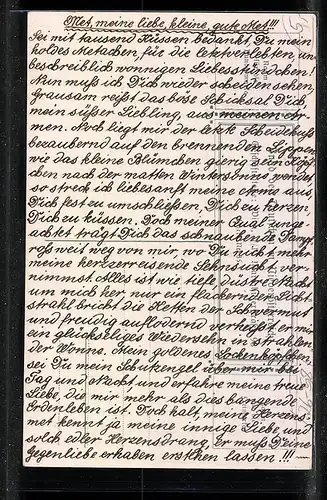 Met, meine liebe, kleine, gute Met!!!
Sei mit tausend Küssen bedankt, Du mein
holdes Metachen, für die letztverlebten, un-
beschreiblich wonnigen Liebesstündchen!
Nun muß ich Dich wieder scheiden sehen,
Grausam reißt das böse Schicksal Dich,
mein süßer Liebling, aus meinen Ar-
men. Noch liegt mir der letzte Scheidekuß
bezaubernd auf den brennenden Lippen,
wie das kleine Blümchen gierig sein Köpf
chen nach der matten Wintersonne wendet
so streck ich liebesanft meine Arme aus,
Dich fest zu umschließen, Dich zu herzen
Dich zu küssen. Doch meiner Qual unge-
achtet trägt Dich das schnaubende Dampf
roß weit weg von mir, wo Du nicht mehr
meine herzzerreisende Sehnsucht ver-
nimmst. Alles ist wie tiefe, düstre Nacht
um mich her, nur ein flackernder Licht-
strahl bricht die Ketten der Schwermut
und freudig auflodernd verheißt er mir
ein glückseliges Wiedersehn in strahlen
der Wonne. Mein goldenes Lockenköpfchen,
sei Du mein Schutzengel über mir bei
Tag und Nacht und erfahre meine treue
Liebe, die mir mehr als dies bangende
Erdenleben ist. Doch halt, meine Herzens
met kennt ja meine innige Liebe und
solch edler Herzensdrang. Er muß Deine
Gegenliebe erhaben erstehen lassen !!! —